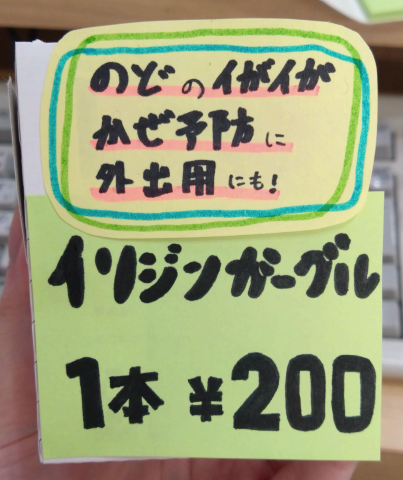 のどのイガイガ
かぜ予防に
外出用にも!
イソジンガーグル
1本 ¥200